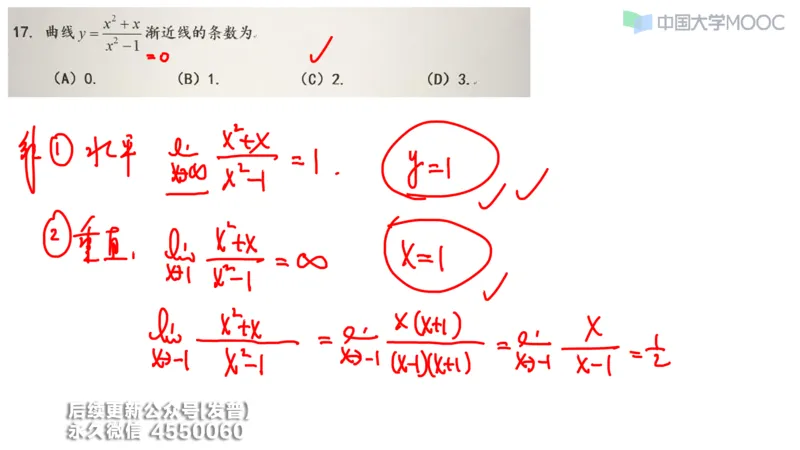 中国大学MOOC
17. 曲线 y = (x² + x)/(x² − 1) 渐近线的条数为
=0
(A) 0. (B) 1. (C) 2. ✓ (D) 3.
解 ① 水平 lim x→∞ (x²+x)/(x²−1) = 1. y=1 ✓✓
② 垂直, lim x→1 (x²+x)/(x²−1) = ∞ x=1 ✓
lim x→−1 (x²+x)/(x²−1) = lim x→−1 x(x+1)/(x−1)(x+1) = lim x→−1 x/(x−1) = 1/2
后续更新公众号(发普)
永久微信 4550060